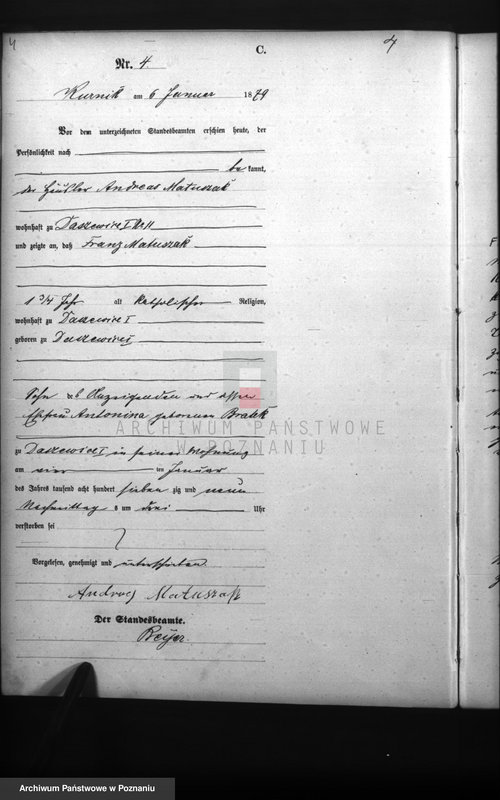 4
C.
4
Nr. 4.
Kurnik am 6 Januar 1879
Vor dem unterzeichneten Standesbeamten erschien heute, der
Persönlichkeit nach
be kannt,
der Häusler Andreas Matuszak
wohnhaft zu Daszewice I
und zeigte an, daß Franz Matuszak
1 3/4 Jahr alt katholischer Religion,
wohnhaft zu Daszewice I
geboren zu Daszewice I
Sohn des Anzeigenden und dessen
Ehefrau Antonina geborenen Bratek
ARCHIWUM PAŃSTWOWE
W POZNANIU
zu Daszewice I in seiner Wohnung
am vier ten Januar
des Jahres tausend acht hundert sieben zig und neun
Nachmittag s um drei Uhr
verstorben sei
Vorgelesen, genehmigt und unterschrieben
Andrzej Matuszak
Der Standesbeamte.
Beyer
Archiwum Państwowe w Poznaniu